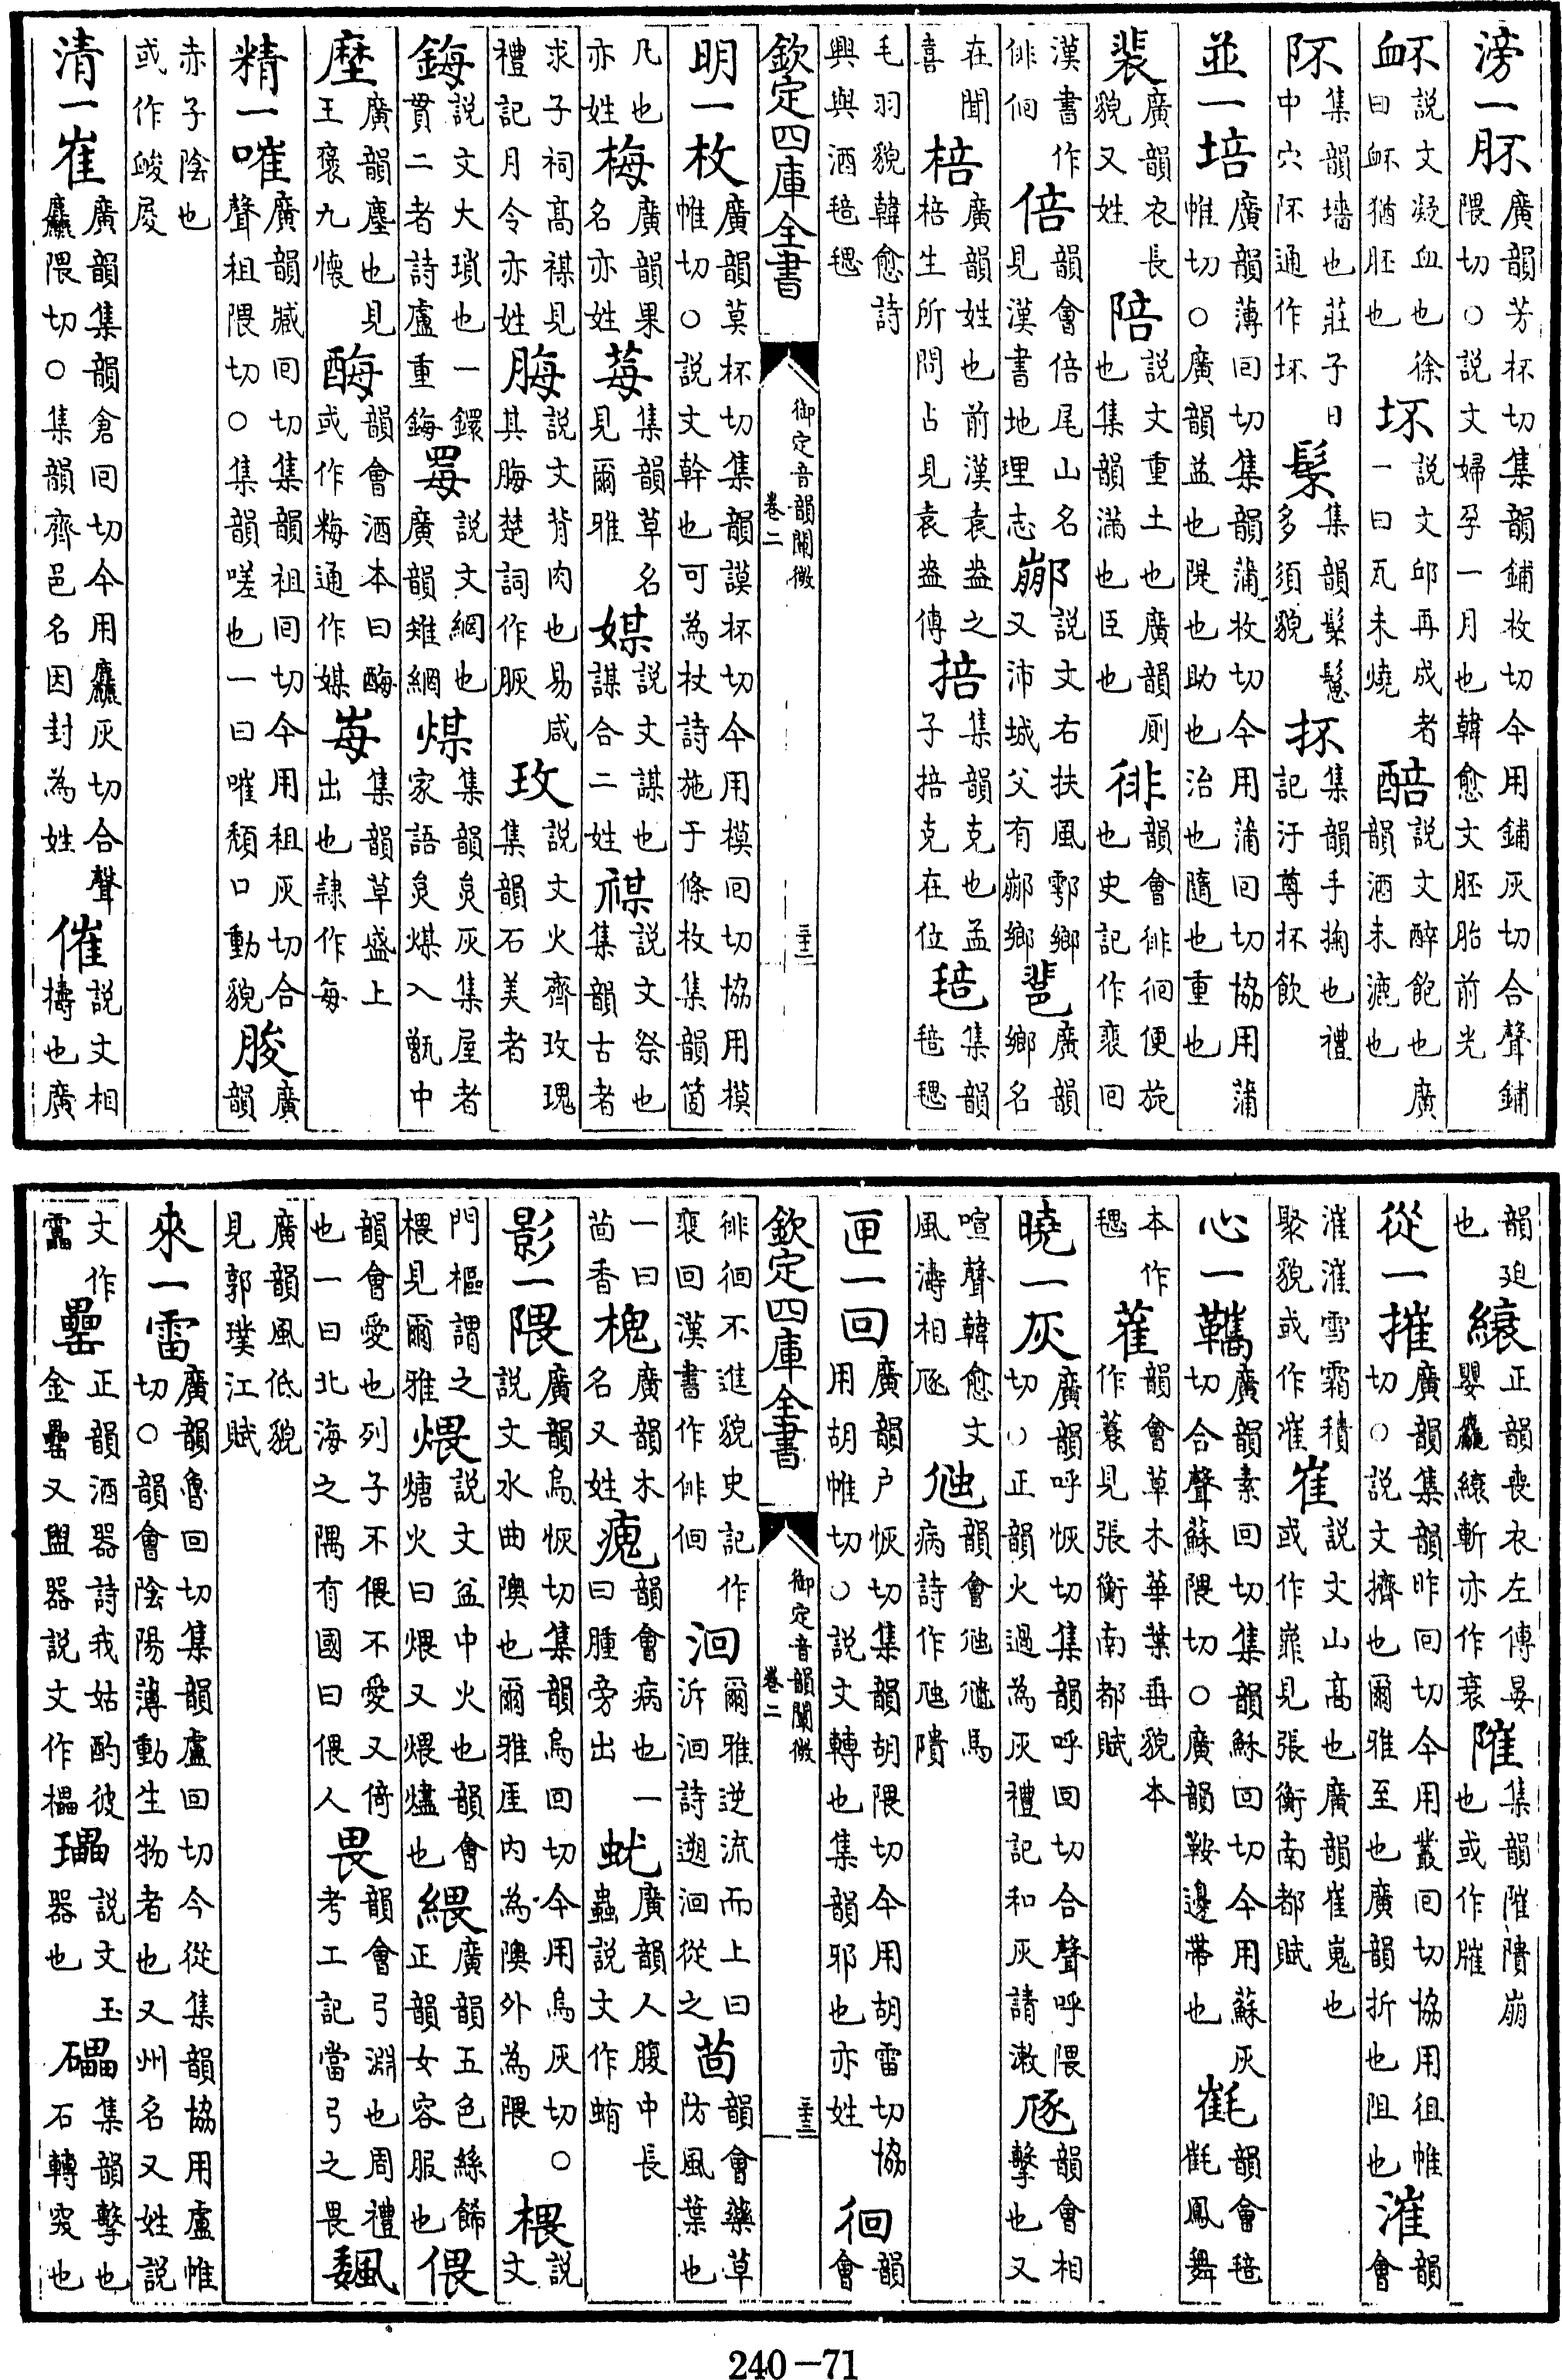 滂一肧廣韻芳杯切集韻鋪枚切今用鋪灰切合聲鋪隈切○説文婦孕一月也韓愈文胚胎前光
衃説文凝血也徐曰衃猶胚也坏説文邱再成者一曰瓦未燒醅説文醉飽也廣韻酒未漉也
阫集韻墻也莊子曰中穴阫通作坏髬集韻髬鬤多須貌抔集韻手掬也禮記汙尊抔飲
並一培廣韻薄回切集韻蒲枚切今用蒲回切協用蒲惟切○廣韻益也隄也助也治也隨也重也
裴廣韻衣長貌又姓陪説文重土也廣韻厠也集韻滿也臣也徘韻會徘徊便旋也史記作裵回
漢書作俳佪倍韻會倍尾山名見漢書地理志䣙説文右扶風鄠鄉又沛城父有䣙鄉𨛬廣韻鄉名
在聞喜棓廣韻姓也前漢袁盎之棓生所問占見袁盎傳掊集韻克也孟子掊克在位毰集韻毰毸
毛羽貌韓愈詩興與酒毰毸
欽定四庫全書 御定音韻闡微 卷二 三十二
明一枚廣韻莫杯切集韻謨杯切今用模回切協用模惟切○説文幹也可為杖詩施于條枚集韻箇
凡也亦姓梅廣韻果名亦姓莓集韻草名見爾雅媒説文謀也謀合二姓禖説文祭也集韻古者
求子祠高禖見禮記月令亦姓脢説文背肉也易咸其脢楚詞作脄玫説文火齊玫瑰集韻石美者
鋂説文大瑣也一鐶貫二者詩盧重鋂罞説文網也廣韻雉網煤集韻炱灰集屋者家語炱煤入甑中
塺廣韻塵也見王褒九懷酶韻會酒本曰酶或作梅通作媒莓集韻草盛上出也隷作每
精一嗺廣韻臧回切集韻祖回切今用租灰切合聲租隈切○集韻嗟也一曰嗺頽口動貌朘廣韻
赤子陰也或作峻㞘
清一崔廣韻集韻倉回切今用麤灰切合聲麤隈切○集韻齊邑名因封為姓催説文相擣也廣
韻廹也縗正韻喪衣左傳晏嬰麤縗斬亦作衰隡集韻隡隤崩也或作膗
從一摧廣韻集韻昨回切今用叢回切協用徂帷切○説文擠也爾雅至也廣韻折也阻也漼韻會
漼漼雪霜積聚貌或作凗嶉説文山高也廣韻崔嵬也或作嶊見張衡南都賦
心一䪎廣韻素回切集韻蘇回切今用蘇灰切合聲蘇隈切○廣韻鞍邊帶也毸韻會毰毸鳳舞
本作毸蓷韻會草木華葉垂貌本作蓑見張衡南都賦
曉一灰廣韻呼恢切集韻呼回切合聲呼隈切○正韻火過為灰禮記和灰請漱豗韻會相擊也又
喧聲韓愈文風濤相豗虺韻會虺尵馬病詩作虺隤
匣一回廣韻户恢切集韻胡隈切今用胡雷切協用胡帷切○説文轉也集韻邪也亦姓徊韻會
徘徊不進貌史記作裵回漢書作俳佪洄爾雅逆流而上曰泝洄詩遡洄從之茴韻會藥草防風葉也
一曰茴香槐廣韻木名又姓瘣韻會病也一曰腫旁出蚘廣韻人腹中長蟲説文作蛕
影一隈廣韻烏恢切集韻烏回切今用烏灰切○説文水曲隩也爾雅厓内為隩外為隈椳説文
門樞謂之椳見爾雅煨説文盆中火也韻會煻火曰煨又煨燼也緭廣韻五色絲飾正韻女容服也偎
韻會愛也列子不偎不愛又倚也一曰北海之隅有國曰偎人畏韻會弓淵也周禮考工記當弓之畏䫥
廣韻風低貌見郭璞江賦
來一雷廣韻魯回切集韻盧回切今從集韻協用盧帷切○韻會陰陽薄動生物者也又州名又姓説
文作靁罍正韻酒器詩我姑酌彼金罍又盥器説文作櫑瓃説文玉器也礧集韻擊也石轉突也
240-71